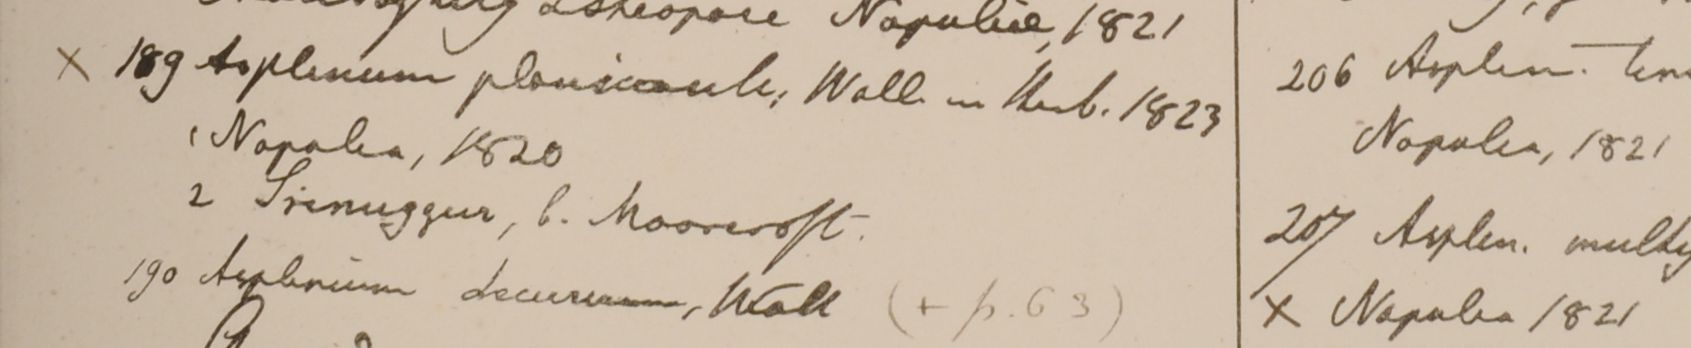 Napaliæ, 1821
× 189 Asplenium planicaule; Wall. in Herb. 1823
1 Napalia, 1820
2 Srinuggur, b. Moorcroft.
190 Asplenium decurrens, Wall (+ p. 63)
206 Asplen.
Napalia, 1821
207 Asplen.
× Napalia 1821